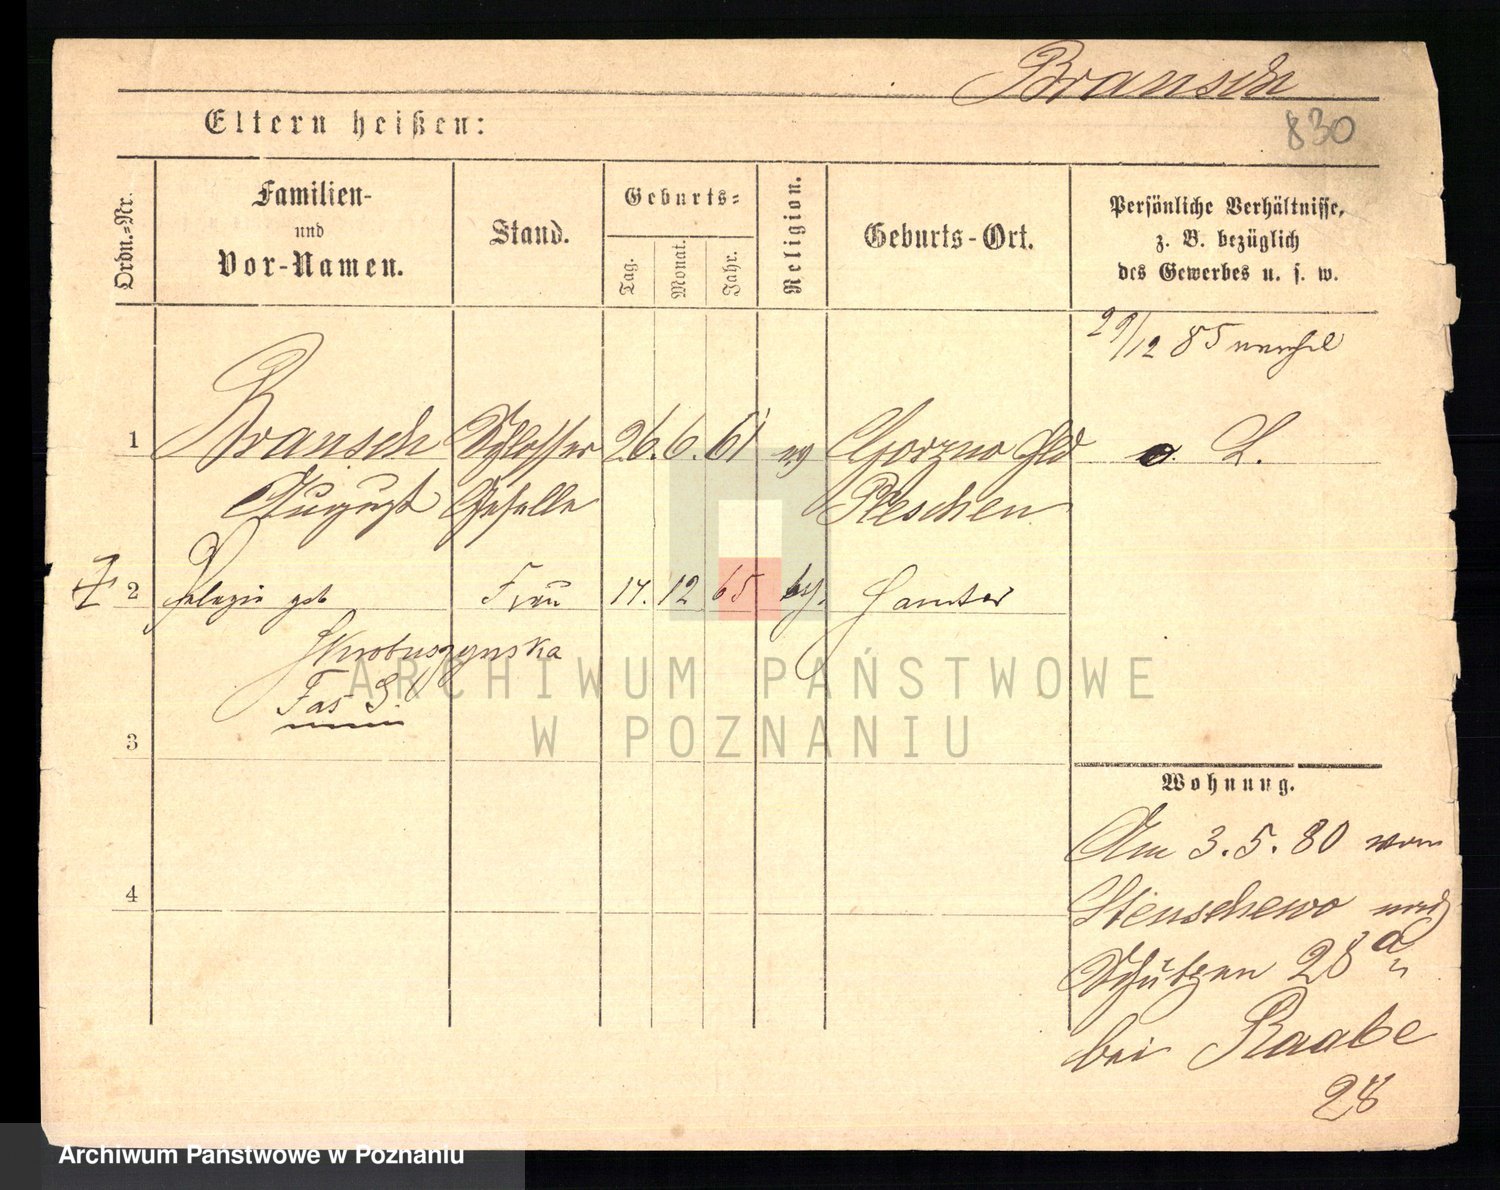 Bransch
830
Eltern heißen:
Ordn.-Nr.
Familien-
und
Vor-Namen.
Stand.
Geburts-
Tag.
Monat.
Jahr.
Religion.
Geburts-Ort.
Persönliche Verhältnisse,
z. B. bezüglich
des Gewerbes u. s. w.
29/12 85
1 Bransch Schlosser 26. 6. 61 ev Gorzno a. L.
August Geselle Pleschen
2 Pelagia geb Frau 17. 12 65 Samter
Skrobuszynska
Fas S.
3
Wohnung.
Am 3.5.80 von
Stenschewo nach
4
Schützen 28 a
bei Raabe
28
ARCHIWUM PAŃSTWOWE
W POZNANIU
Archiwum Państwowe w Poznaniu